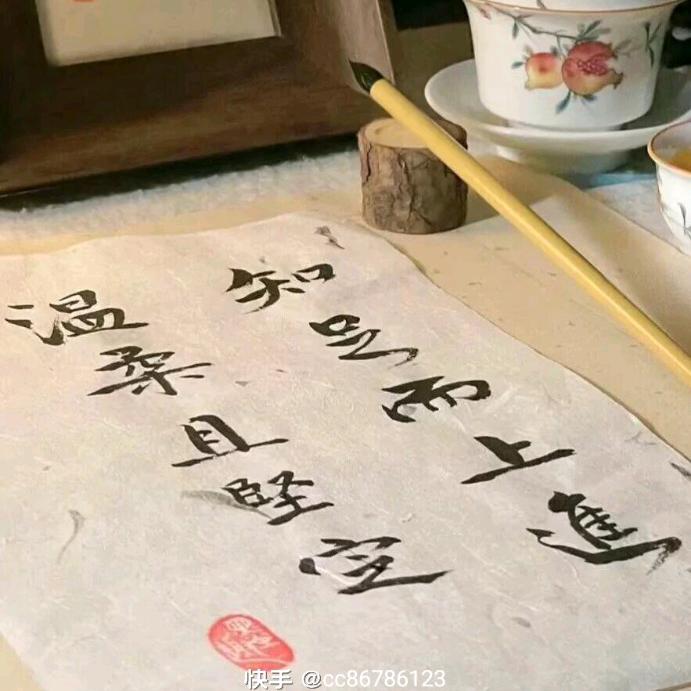 知足而上進
温柔且堅定
快手 @cc86786123